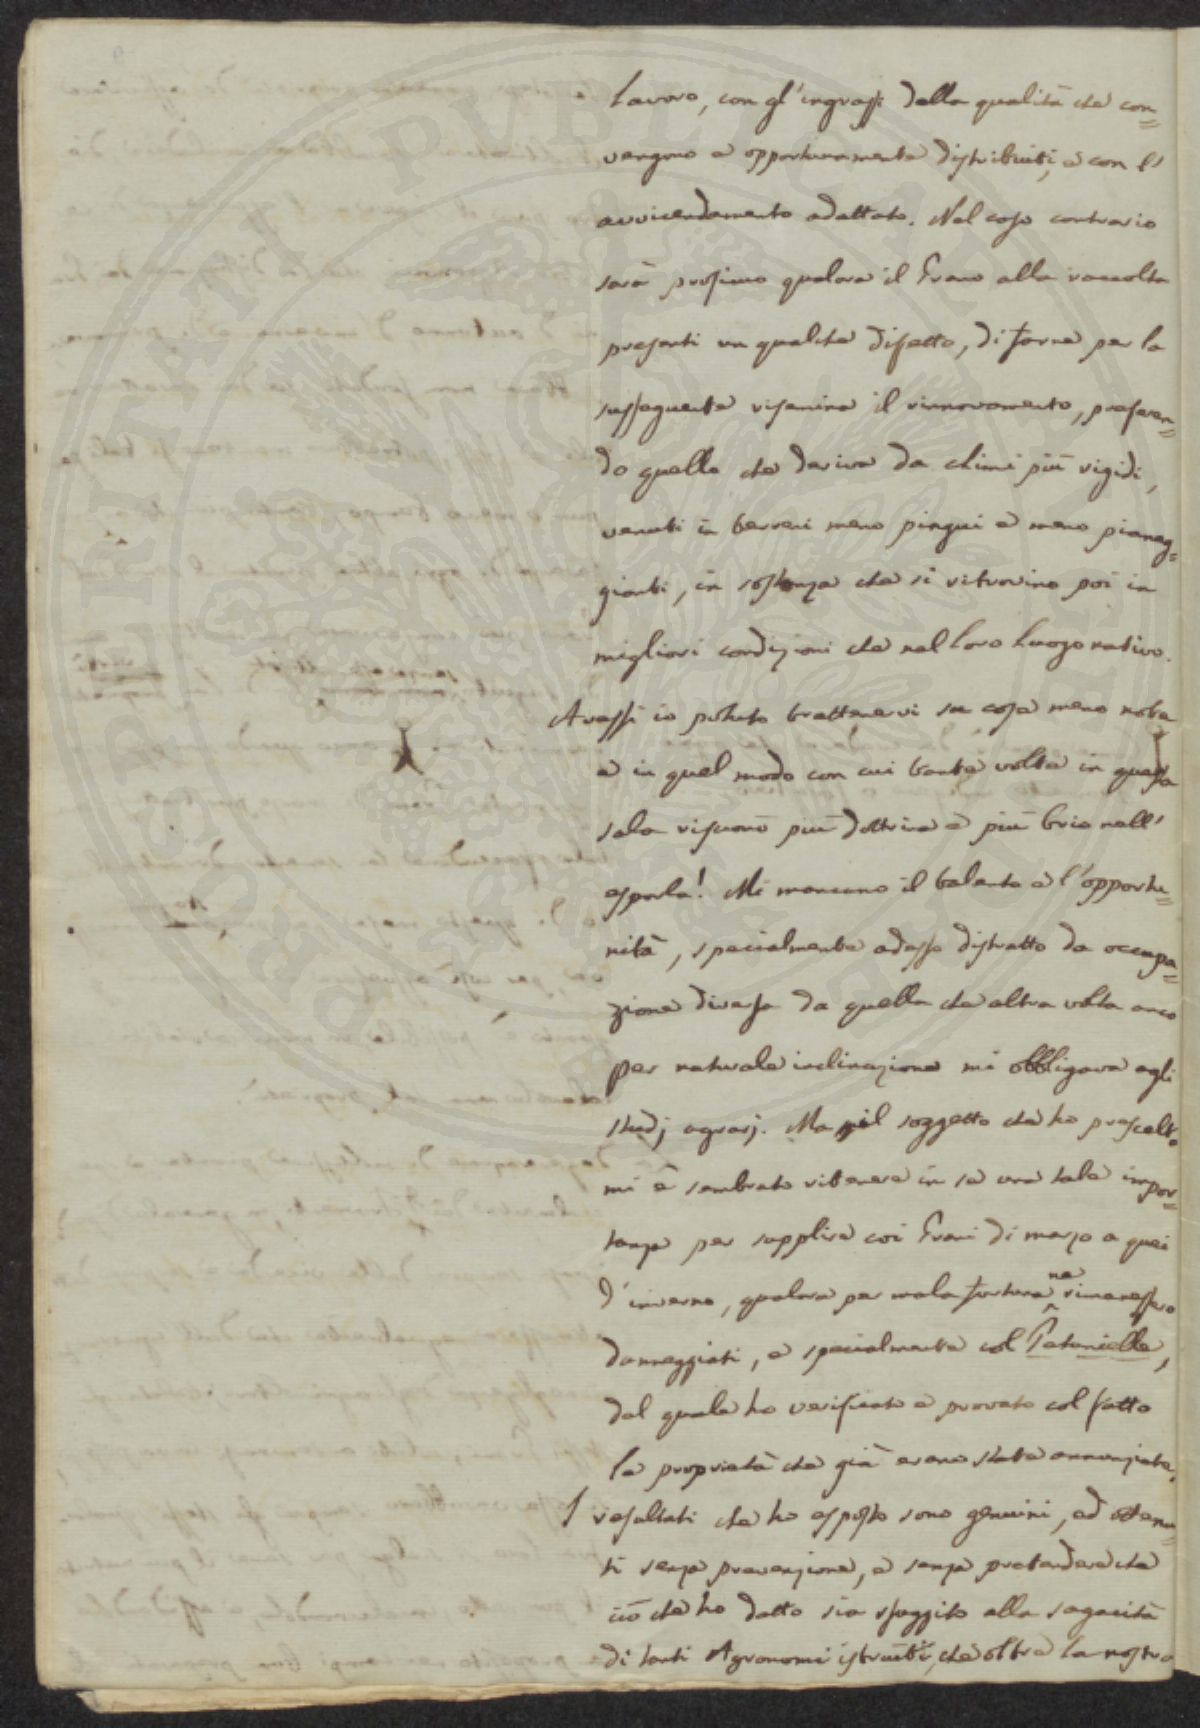 lavoro, con gl'ingrassi della qualità che con=
vengono e opportunamente distribuiti, e con l'
avvicendamento adattato. Nel caso contrario
sarà prossimo qualora il Grano alla raccolta
presenti un qualche difetto, di farne per la
susseguente risemina il rinnovamento, preferen=
do quello che deriva da climi più rigidi,
venuti in terreni meno pingui e meno pianeg=
gianti, in sostanza che si ritrovino poi in
migliori condizioni che nel loro luogo nativo.
Avessi io potuto trattenervi su cosa meno nota
e in quel modo con cui tante volte in questa
sala risuonò più dottrina e più brio nell'
esporla! Mi mancano il talento e l'opportu=
nità, specialmente adesso distratto da occupa=
zione diversa da quella che altra volta anco
per naturale inclinazione mi obbligava agli
studj agrarj. Ma il soggetto che ho prescelto
mi è sembrato ritenere in se una tale impor=
tanza per supplire coi Grani di marzo a quei
d'inverno, qualora per mala fortuna ne rimanessero
danneggiati, e specialmente col Petanielle,
del quale ho verificato e provato col fatto
le proprietà che già erano state annunziate.
I resultati che ho esposto sono genuini, ed ottenu=
ti senza prevenzione, e senza pretendere che
ciò che ho detto sia sfuggito alla sagacità
di tanti Agronomi istruiti, che oltre la nostra